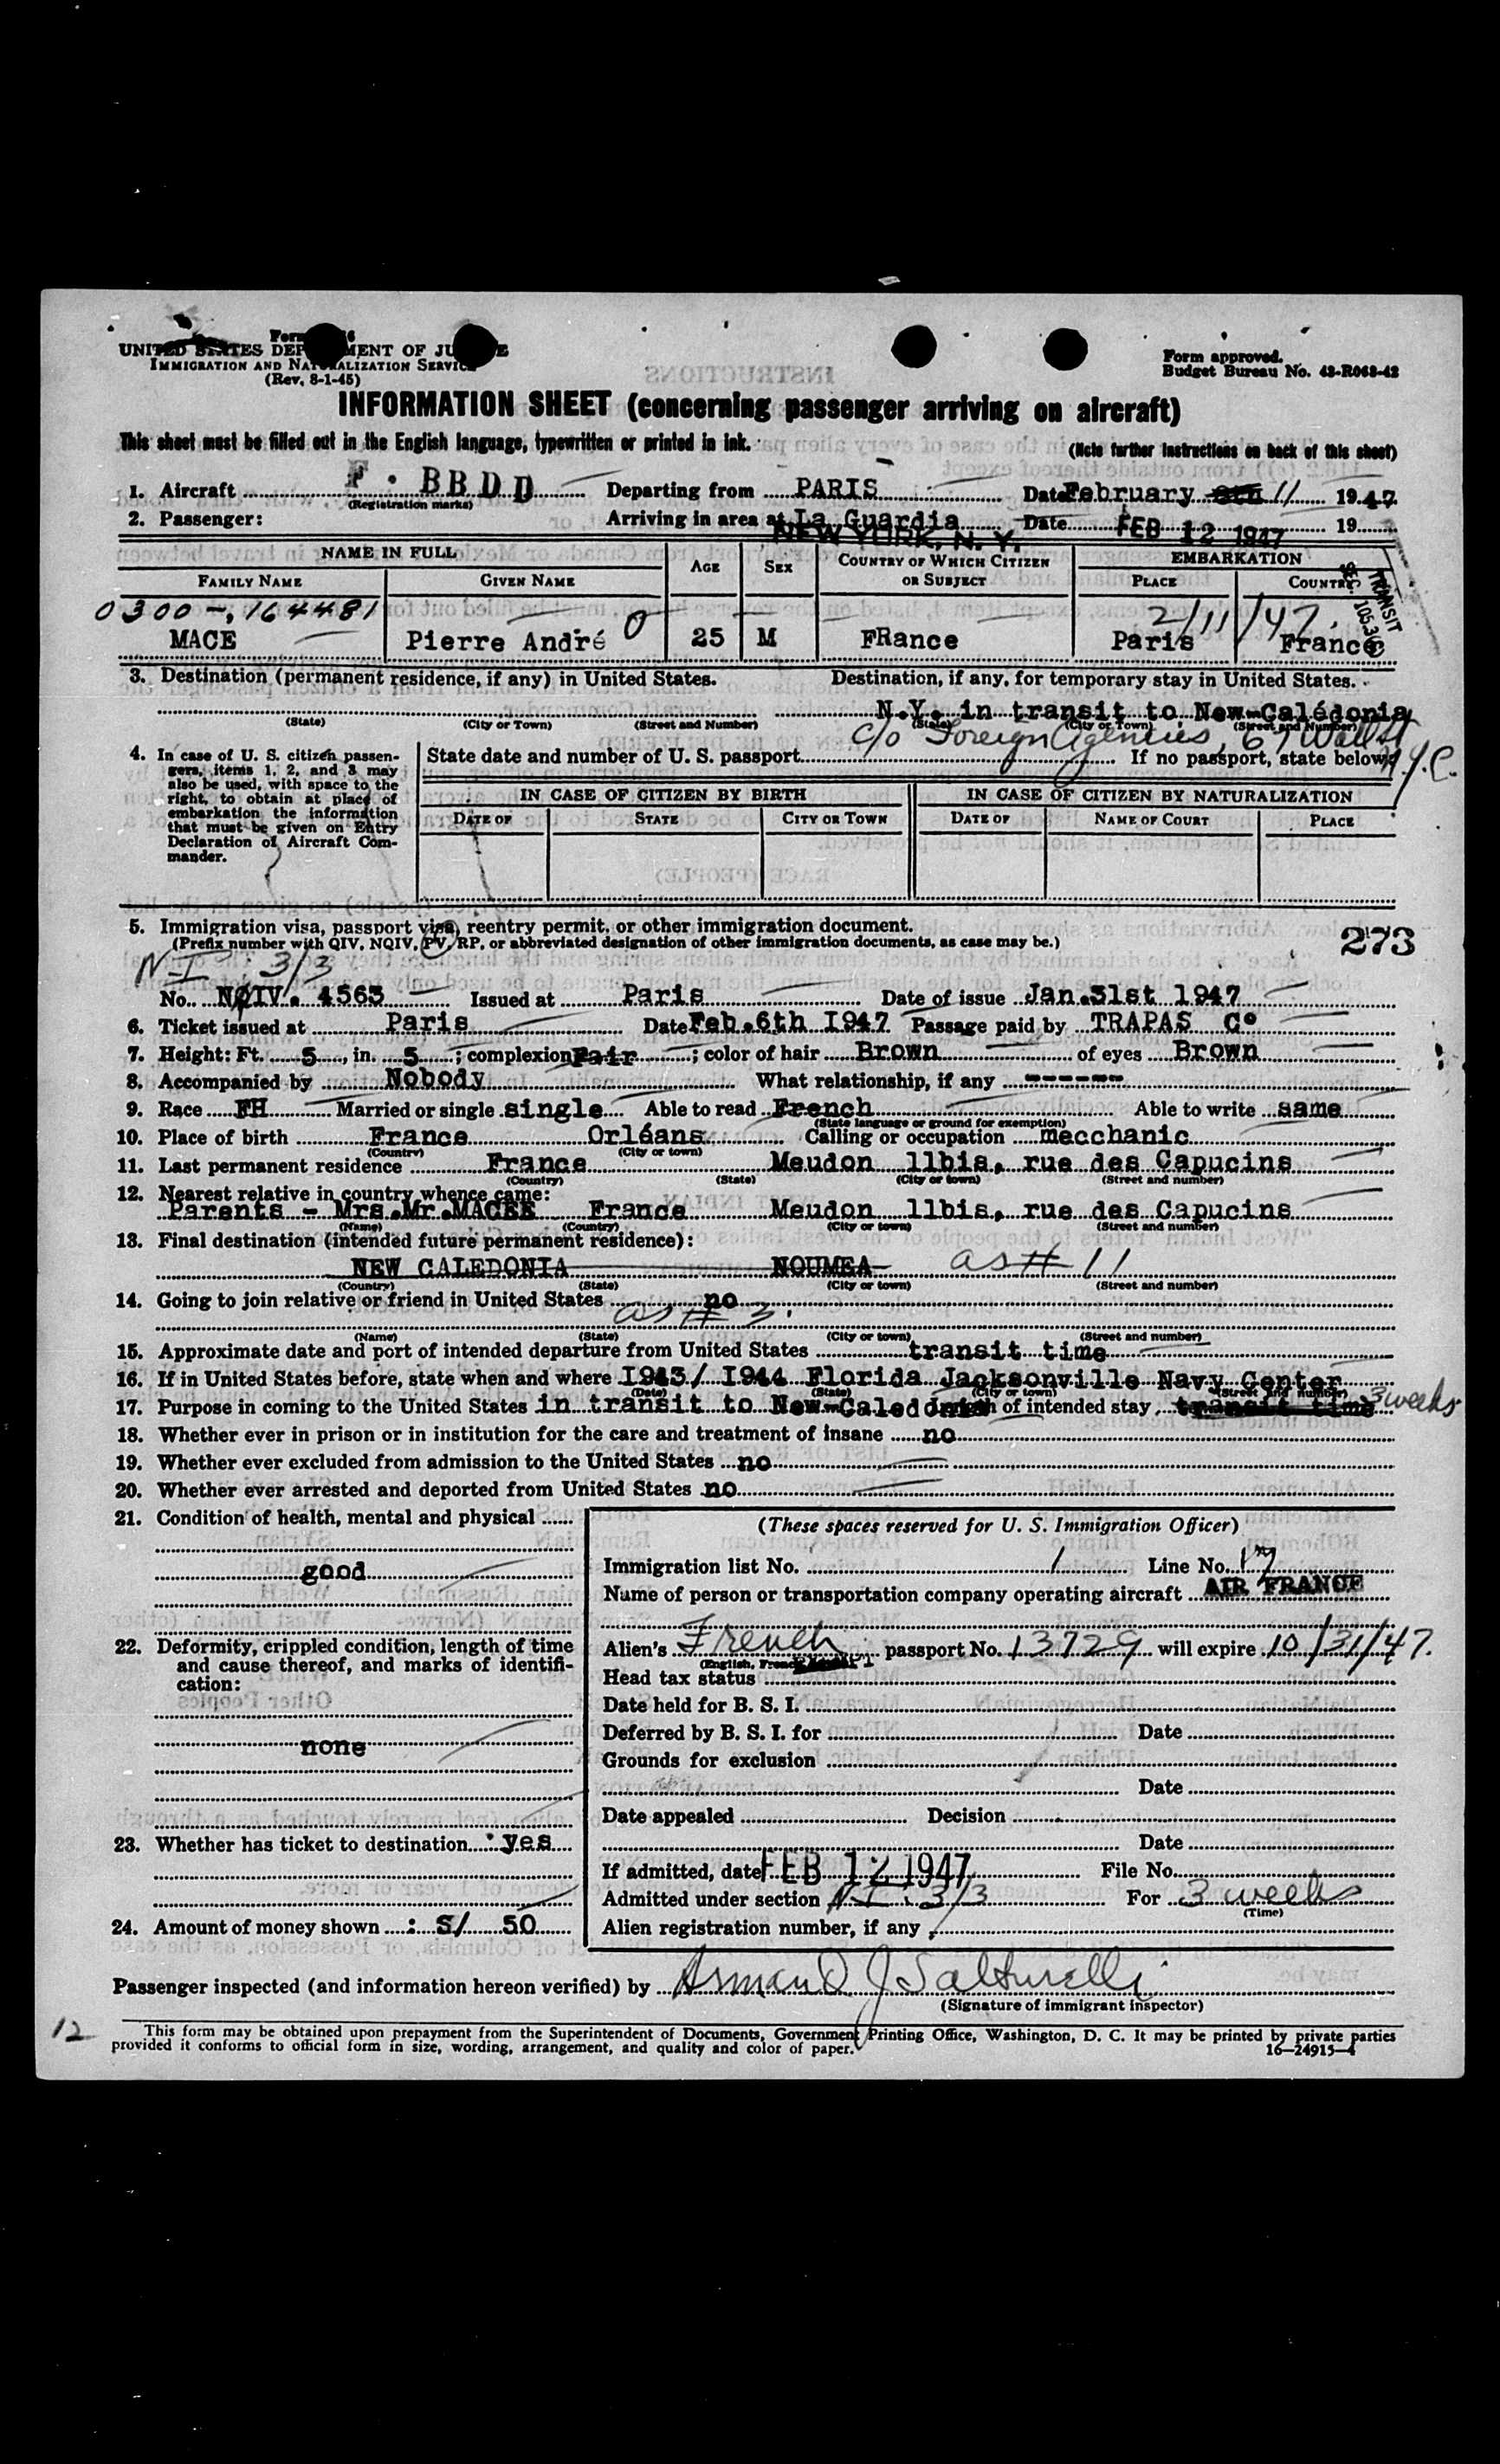 Form
UNITED STATES DEPARTMENT OF JUSTICE
IMMIGRATION AND NATURALIZATION SERVICE
(Rev. 8-1-45)
Form approved.
Budget Bureau No. 43-R063-42
INFORMATION SHEET (concerning passenger arriving on aircraft)
This sheet must be filled out in the English language, typewritten or printed in ink.
(Note further instructions on back of this sheet)
1. Aircraft F · BBDD Departing from PARIS Date February 11 1947
(Registration marks)
2. Passenger: Arriving in area at La Guardia Date FEB 12 1947 19
NEW YORK, N. Y.
NAME IN FULL AGE SEX COUNTRY OF WHICH CITIZEN OR SUBJECT EMBARKATION
FAMILY NAME GIVEN NAME PLACE COUNTRY
TRANSIT
0300-,164481 2/11/47.
MACE Pierre André 0 25 M FRance Paris France
3. Destination (permanent residence, if any) in United States. Destination, if any, for temporary stay in United States.
N.Y. in transit to New-Calédonia
(State) (City or Town) (Street and Number) (State) (City or Town) (Street and Number)
c/o Foreign Agencies, 67 Wall St N.Y.C.
4. In case of U. S. citizen passengers, items 1, 2, and 3 may also be used, with space to the right, to obtain at place of embarkation the information that must be given on Entry Declaration of Aircraft Commander.
State date and number of U. S. passport If no passport, state below:
IN CASE OF CITIZEN BY BIRTH IN CASE OF CITIZEN BY NATURALIZATION
DATE OF STATE CITY OR TOWN DATE OF NAME OF COURT PLACE
5. Immigration visa, passport visa, reentry permit, or other immigration document.
(Prefix number with QIV, NQIV, PV, RP, or abbreviated designation of other immigration documents, as case may be.)
273
N-I 3/3
No. NQIV. 4563 Issued at Paris Date of issue Jan.31st 1947
6. Ticket issued at Paris Date Feb.6th I947 Passage paid by TRAPAS C°
7. Height: Ft. 5, in. 5; complexion Fair; color of hair Brown of eyes Brown
8. Accompanied by Nobody What relationship, if any ------
9. Race FH Married or single single Able to read French Able to write same
(State language or ground for exemption)
10. Place of birth France Orléans Calling or occupation mecchanic
(Country) (City or town)
11. Last permanent residence France Meudon 11bis, rue des Capucins
(Country) (State) (City or town) (Street and number)
12. Nearest relative in country whence came:
Parents - Mrs.Mr.MACEE France Meudon 11bis, rue des Capucins
(Name) (Country) (City or town) (Street and number)
13. Final destination (intended future permanent residence):
NEW CALEDONIA NOUMEA as # 11
(Country) (State) (City or town) (Street and number)
14. Going to join relative or friend in United States no
as # 3.
(Name) (State) (City or town) (Street and number)
15. Approximate date and port of intended departure from United States transit time
16. If in United States before, state when and where I943/ I944 Florida Jacksonville Navy Center
(Date) (State) (City or town) (Street and number)
17. Purpose in coming to the United States in transit to New-Caledonia Length of intended stay transit time 3 weeks
18. Whether ever in prison or in institution for the care and treatment of insane no
19. Whether ever excluded from admission to the United States no
20. Whether ever arrested and deported from United States no
21. Condition of health, mental and physical
good
22. Deformity, crippled condition, length of time and cause thereof, and marks of identification:
none
23. Whether has ticket to destination yes
24. Amount of money shown : S/ 50
(These spaces reserved for U. S. Immigration Officer)
Immigration list No. 1 Line No. 17
Name of person or transportation company operating aircraft AIR FRANCE
Alien's French passport No. 13729 will expire 10/31/47.
Head tax status
Date held for B. S. I.
Deferred by B. S. I. for Date
Grounds for exclusion
Date
Date appealed Decision
Date
If admitted, date FEB 12 1947 File No.
Admitted under section N-I. 3/3 For 3 weeks
(Time)
Alien registration number, if any
Passenger inspected (and information hereon verified) by Armand J Salturelli
(Signature of immigrant inspector)
12
This form may be obtained upon prepayment from the Superintendent of Documents, Government Printing Office, Washington, D. C. It may be printed by private parties
provided it conforms to official form in size, wording, arrangement, and quality and color of paper.
16—24915-4